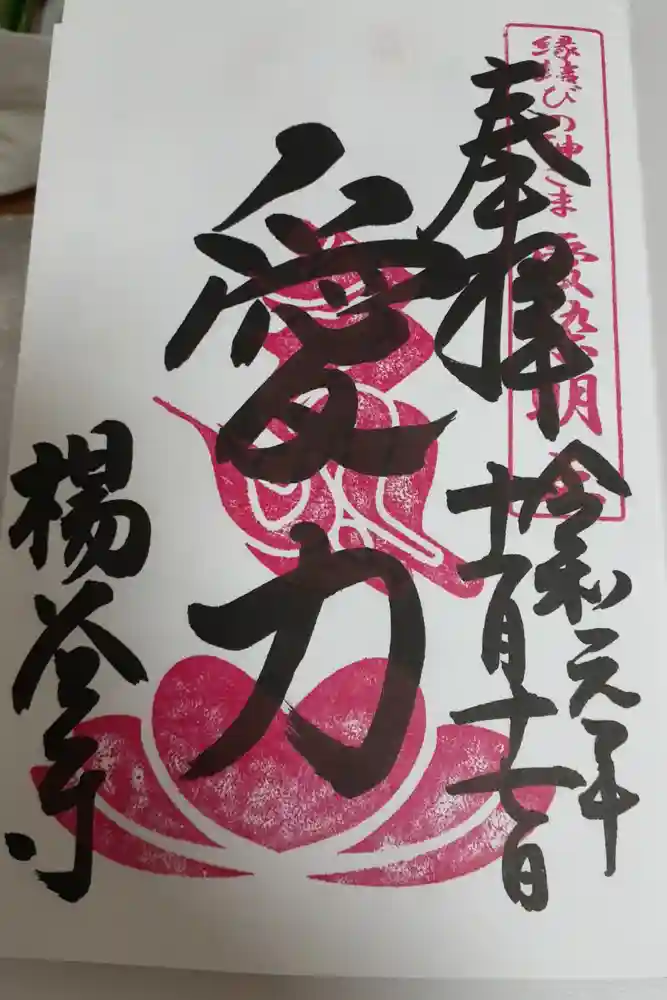 縁結びの神さま 愛染明王
奉拝
令和元年
十一月十七日
愛力
楊谷寺